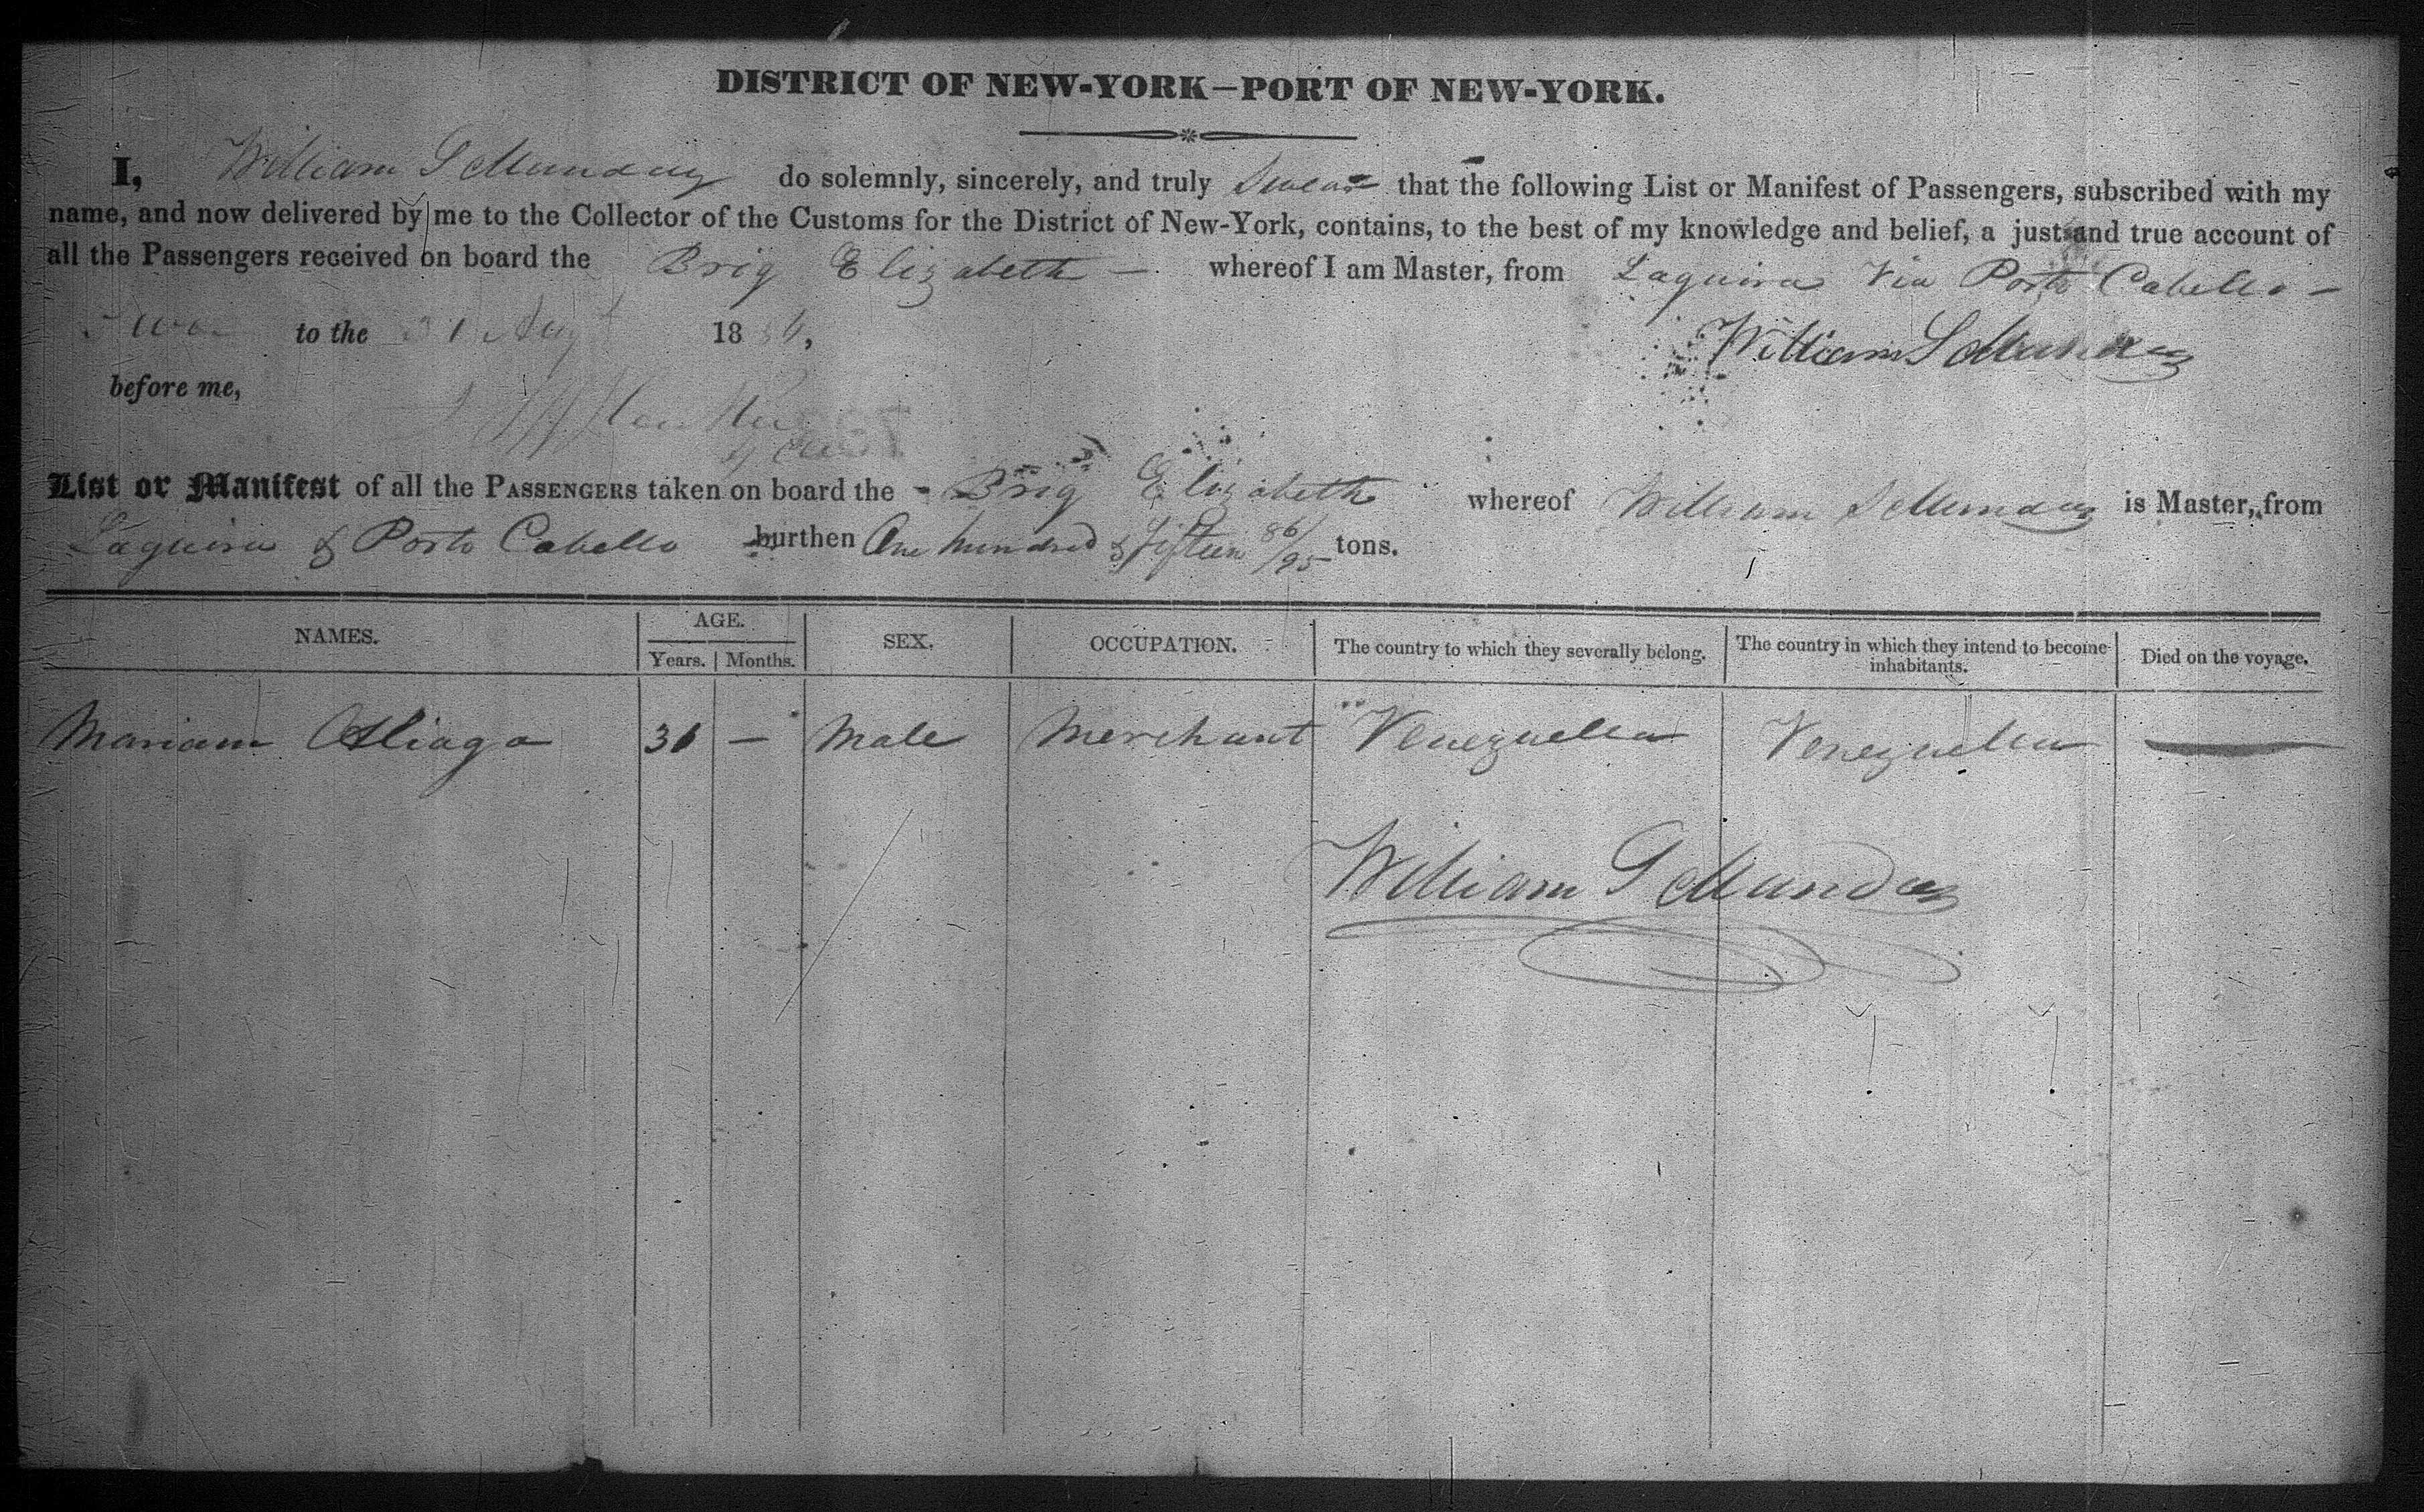 DISTRICT OF NEW-YORK—PORT OF NEW-YORK.
I, William S Munday do solemnly, sincerely, and truly Swear that the following List or Manifest of Passengers, subscribed with my
name, and now delivered by me to the Collector of the Customs for the District of New-York, contains, to the best of my knowledge and belief, a just and true account of
all the Passengers received on board the Brig Elizabeth — whereof I am Master, from Laguira Via Porto Cabello —
to the 31 Augt 18 36,
William S Munday
before me,
List or Manifest of all the PASSENGERS taken on board the - Brig Elizabeth whereof William S Munday is Master, from
Laguira & Porto Cabello burthen One hundred & fifteen 86/95 tons.
NAMES. AGE. SEX. OCCUPATION. The country to which they severally belong. The country in which they intend to become inhabitants. Died on the voyage.
Years. Months.
Mariam Aliaga 31 — Male Merchant " Venezuella Venezuella —
William S Munday